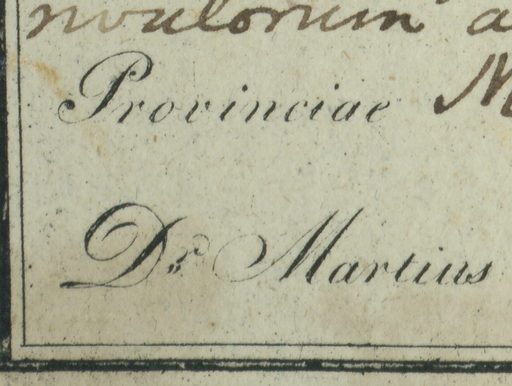 rivulorum
Provinciae
Dr. Martius